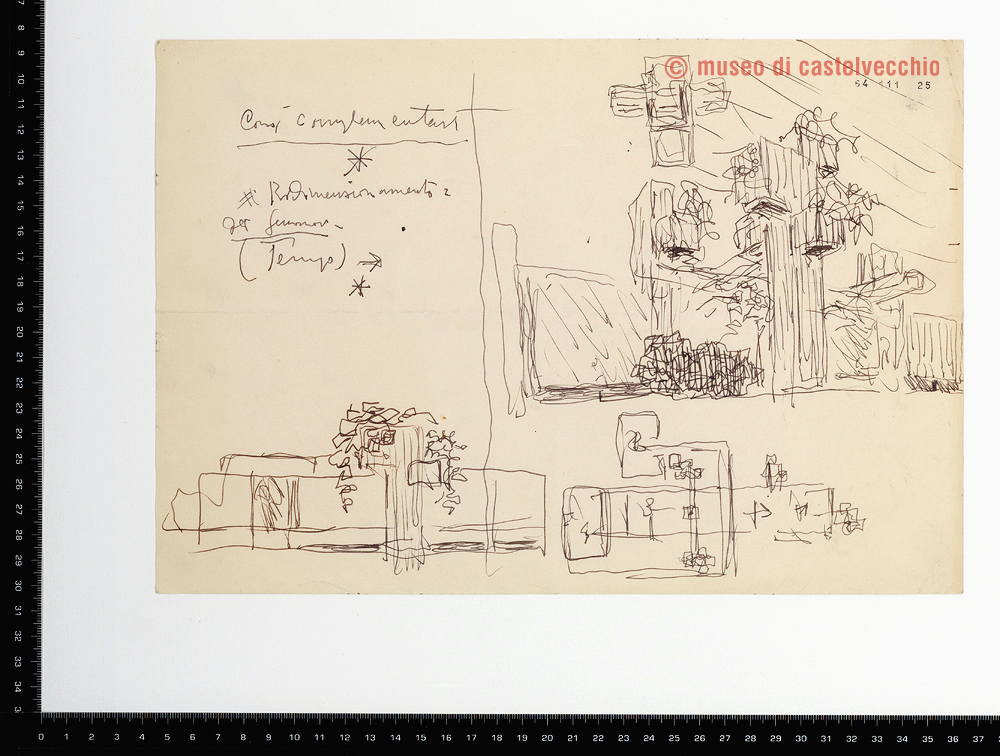 © museo di castelvecchio
64 111 25
Così complementari
* Ridimensionamento
per
(Tempo) →
7
8
9
10
11
12
13
14
15
16
17
18
19
20
21
22
23
24
25
26
27
28
29
30
31
32
33
34
0 1 2 3 4 5 6 7 8 9 10 11 12 13 14 15 16 17 18 19 20 21 22 23 24 25 26 27 28 29 30 31 32 33 34 35 36 37